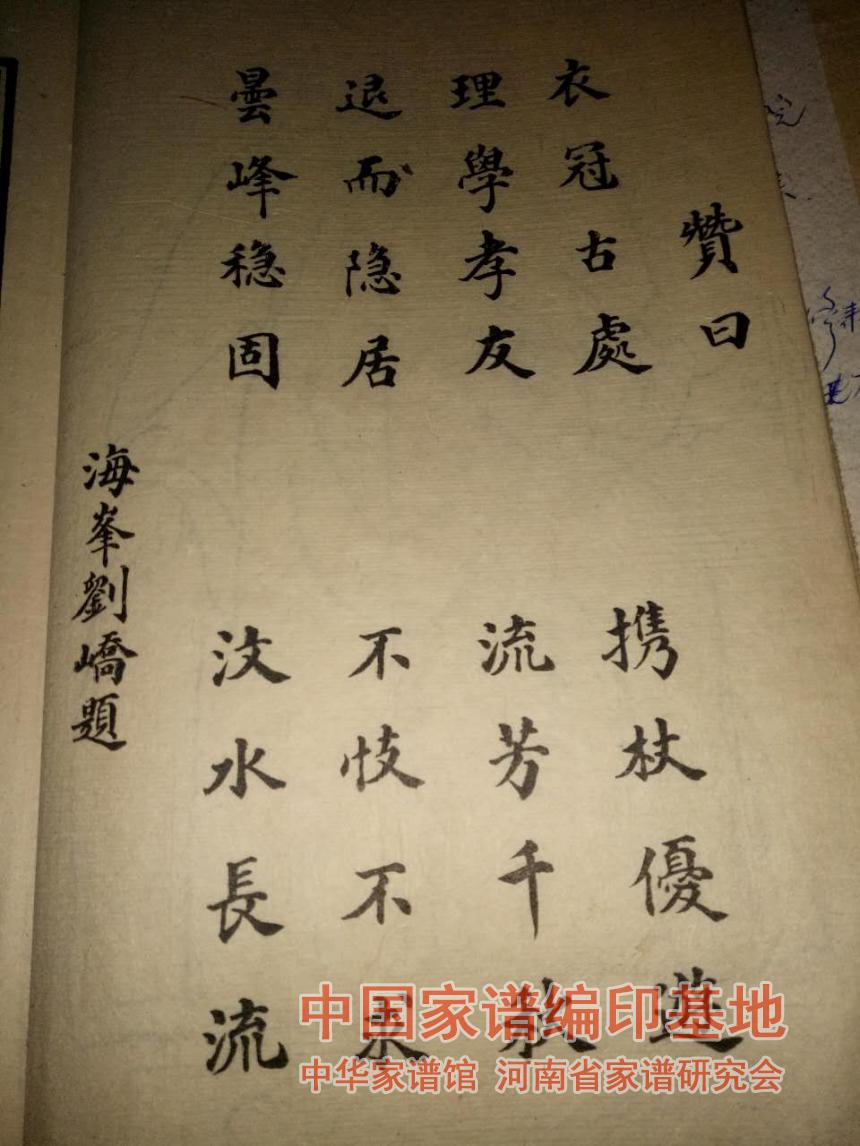 贊曰
衣冠古處
携杖優遊
理學孝友
流芳千秋
退而隐居
不忮不求
曇峰稳固
汶水長流
海峯劉嶠題
中国家谱编印基地
中华家谱馆 河南省家谱研究会